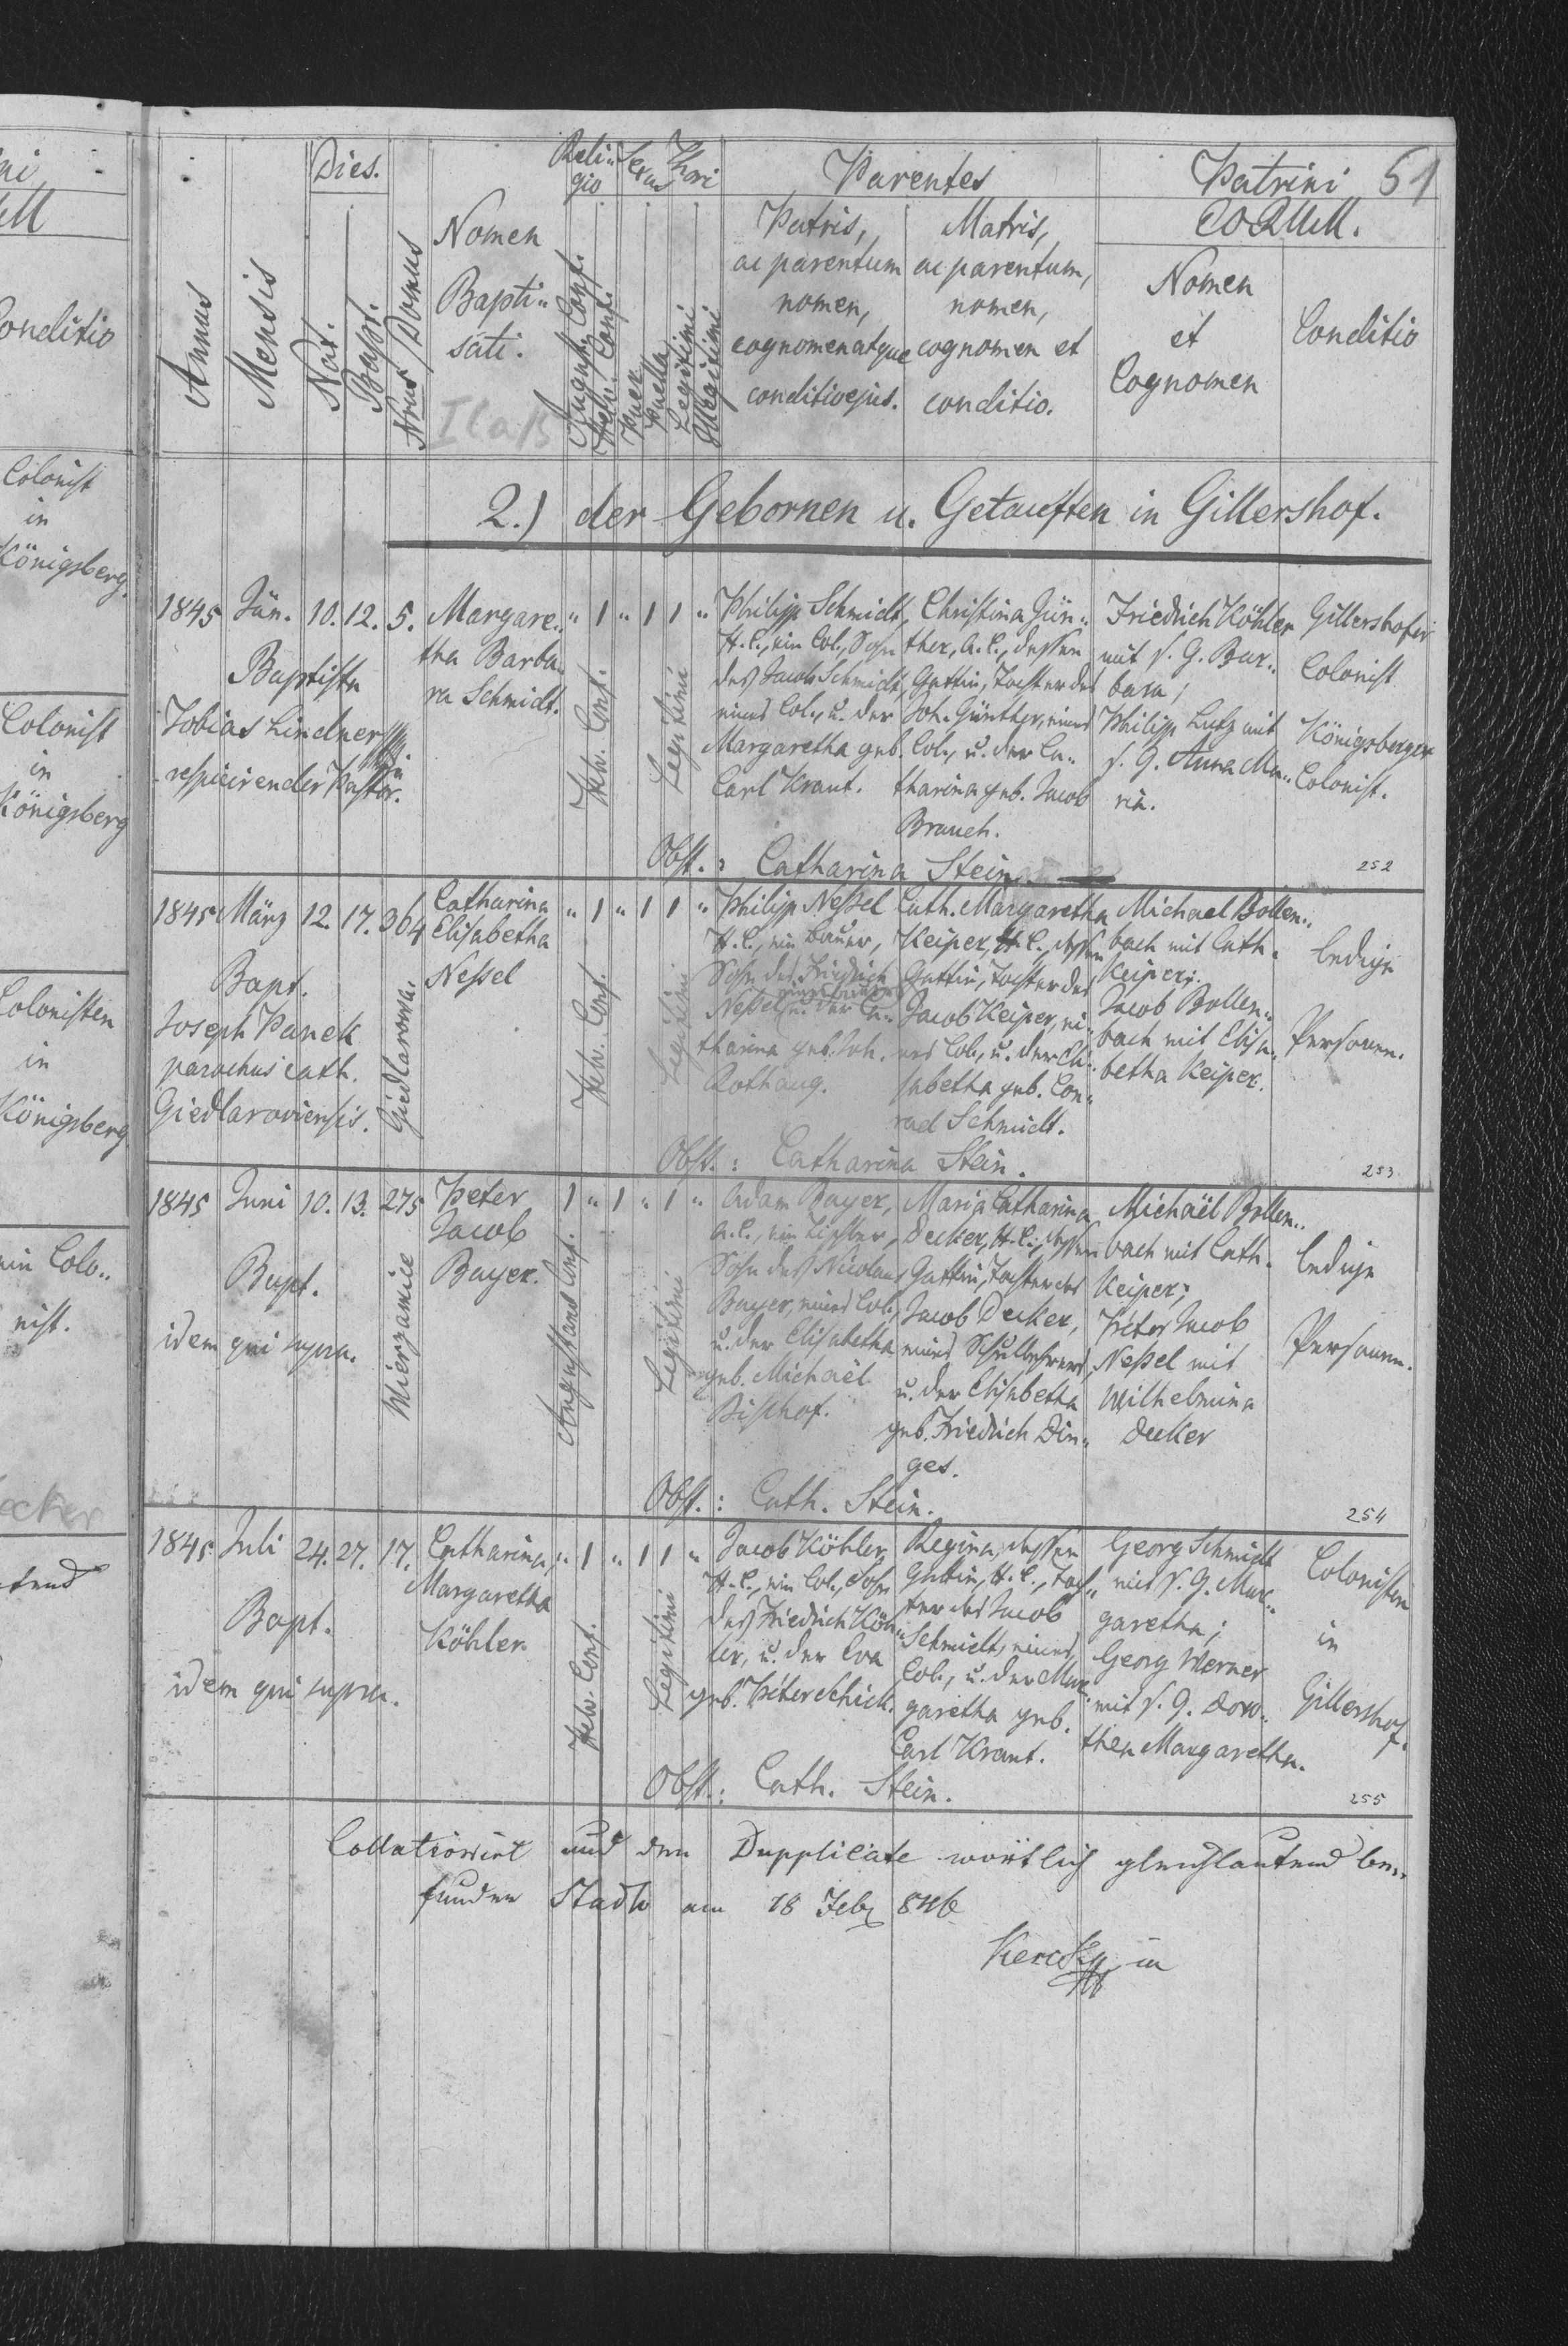 ni
M
Conditio
Colonist
in
Königsberg.
Colonist
in
Königsberg
Colonisten
in
Königsberg
ein Colo„
nist.
ecker
Dies.
Reli„
gio
Sexus
Thori
Parentes
Patrini 51
Annus
Mensis
Nat.
Bapt.
Nrus Domus
Nomen
Bapti„
sati.
August. Conf.
Helv. Conf.
Puer
Puella
Legitimi
Illegitimi
Patris,
ac parentum
nomen,
cognomen atque
conditio ejus.
Matris,
ac parentum,
nomen,
cognomen et
conditio.
Nomen
et
Cognomen
Conditio
2.) der Gebornen u. Getauften in Gillershof.
1845 Jän. 10. 12. 5.
Baptista
Tobias Lindner
respicirender Pastor.
Margare„
tha Barba„
ra Schmidt.
„ 1 „ 1 1 „
Helv. Conf.
Legitimi
Philipp Schmidt,
H. C., ein Col., Sohn
des Jacob Schmidt,
eines Col., u. der
Margaretha geb.
Carl Kraut.
Christina Gün„
ther, A. C., dessen
Gattin, Tochter des
Joh. Günther, eines
Col., u. der Ca„
tharina geb. Jacob
Brauch.
Friedrich Köhler
mit s. G. Bar„
bara;
Philipp Lutz mit
s. G. Anna Ma„
ria.
Gillershofer
Colonist
Königsberger
Colonist.
Obst.: Catharina Stein.
252
1845 März 12. 17. 364
Bapt.
Joseph Panek
parochus cath.
Giedlaroviensis.
Giedlarowa.
Catharina
Elisabetha
Neßel
„ 1 „ 1 1 „
Helv. Conf.
Legitimi
Philipp Neßel
H. C., ein Bauer,
Sohn des Friedrich
Neßel, eines Bauers
u. der Ca„
tharina geb. Joh.
Rothaug.
Cath. Margaretha
Keiper, H. C., dessen
Gattin, Tochter des
Jacob Keiper, ei„
nes Col., u. der Eli„
sabetha geb. Con„
rad Schmidt.
Michael Bollen„
bach mit Cath.
Keiper;
Jacob Bollen„
bach mit Elisa„
betha Keiper.
ledige
Personen.
Obst.: Catharina Stein.
253
1845 Juni 10. 13. 275
Bapt.
idem qui supra.
Mierzanice
Peter
Jacob
Bayer.
1 „ 1 „ 1 „
Augustana Conf.
Legitimi
Adam Bayer,
A. C., ein Tischler,
Sohn des Nicolaus
Bayer, eines Col.,
u. der Elisabetha
geb. Michaël
Bischof.
Maria Catharina
Decker, H. C., dessen
Gattin, Tochter des
Jacob Decker,
eines Schullehrers,
u. der Elisabetha
geb. Friedrich Din„
ges.
Michaël Bollen„
bach mit Cath.
Keiper;
Peter Jacob
Neßel mit
Wilhelmina
Decker
ledige
Personen.
Obst.: Cath. Stein.
254
1845 Juli 24. 27. 17.
Bapt.
idem qui supra.
Catharina
Margaretha
Köhler
„ 1 „ 1 1 „
Helv. Conf.
Legitimi
Jacob Köhler,
H. C., ein Col., Sohn
des Friedrich Köh„
ler, u. der Eva
geb. Peter Schick.
Regina, dessen
Gattin, H. C., Toch„
ter des Jacob
Schmidt, eines
Col., u. der Mar„
garetha geb.
Carl Kraut.
Georg Schmidt
mit s. G. Mar„
garetha;
Georg Werner
mit s. G. Doro„
thea Margaretha.
Colonisten
in
Gillershof.
Obst.: Cath. Stein.
255
Collationirt und dem Dupplicate wörtlich gleichlautend be„
funden Stadlo am 18 Feb 846